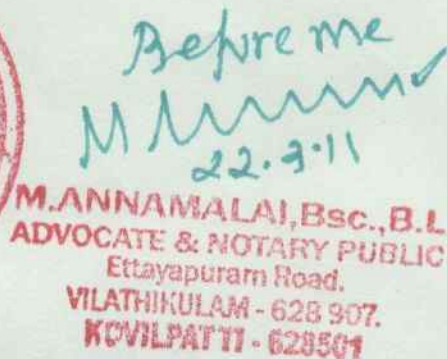 Before me
M
22.3.11
M.ANNAMALAI,Bsc.,B.L
ADVOCATE & NOTARY PUBLIC
Ettayapuram Road.
VILATHIKULAM - 628 907.
KOVILPATTI - 628501